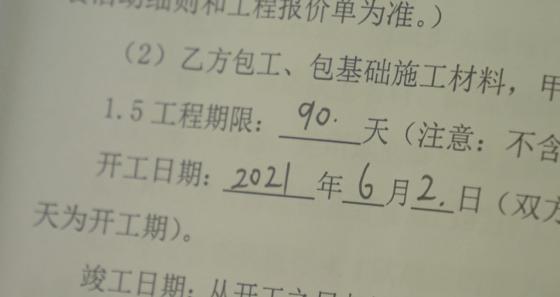 活动细则和工程报价单为准。）
（2）乙方包工、包基础施工材料，甲
1.5工程期限：90.天（注意：不含
开工日期：2021年6月2.日（双方
天为开工期）。
竣工日期：从开工之日